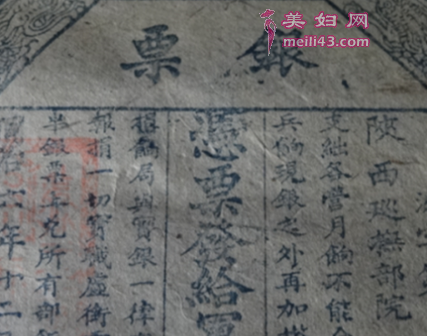 美妇网
meili43.com
銀票
陝西巡撫部院
支絀各營月餉不能
兵餉現銀之外再加
憑票發給軍
局與實銀一律
報捐一切實職虛銜
半銀票上兌所有部
同治六年十二